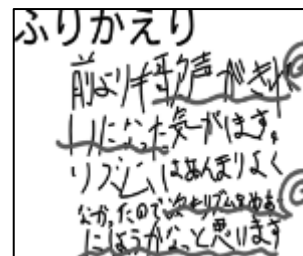 ふりかえり
前より歌声がきれ
いになった気がします。
リズムはあんまりよく
なかったので次もリズムを
にようかなっと思います